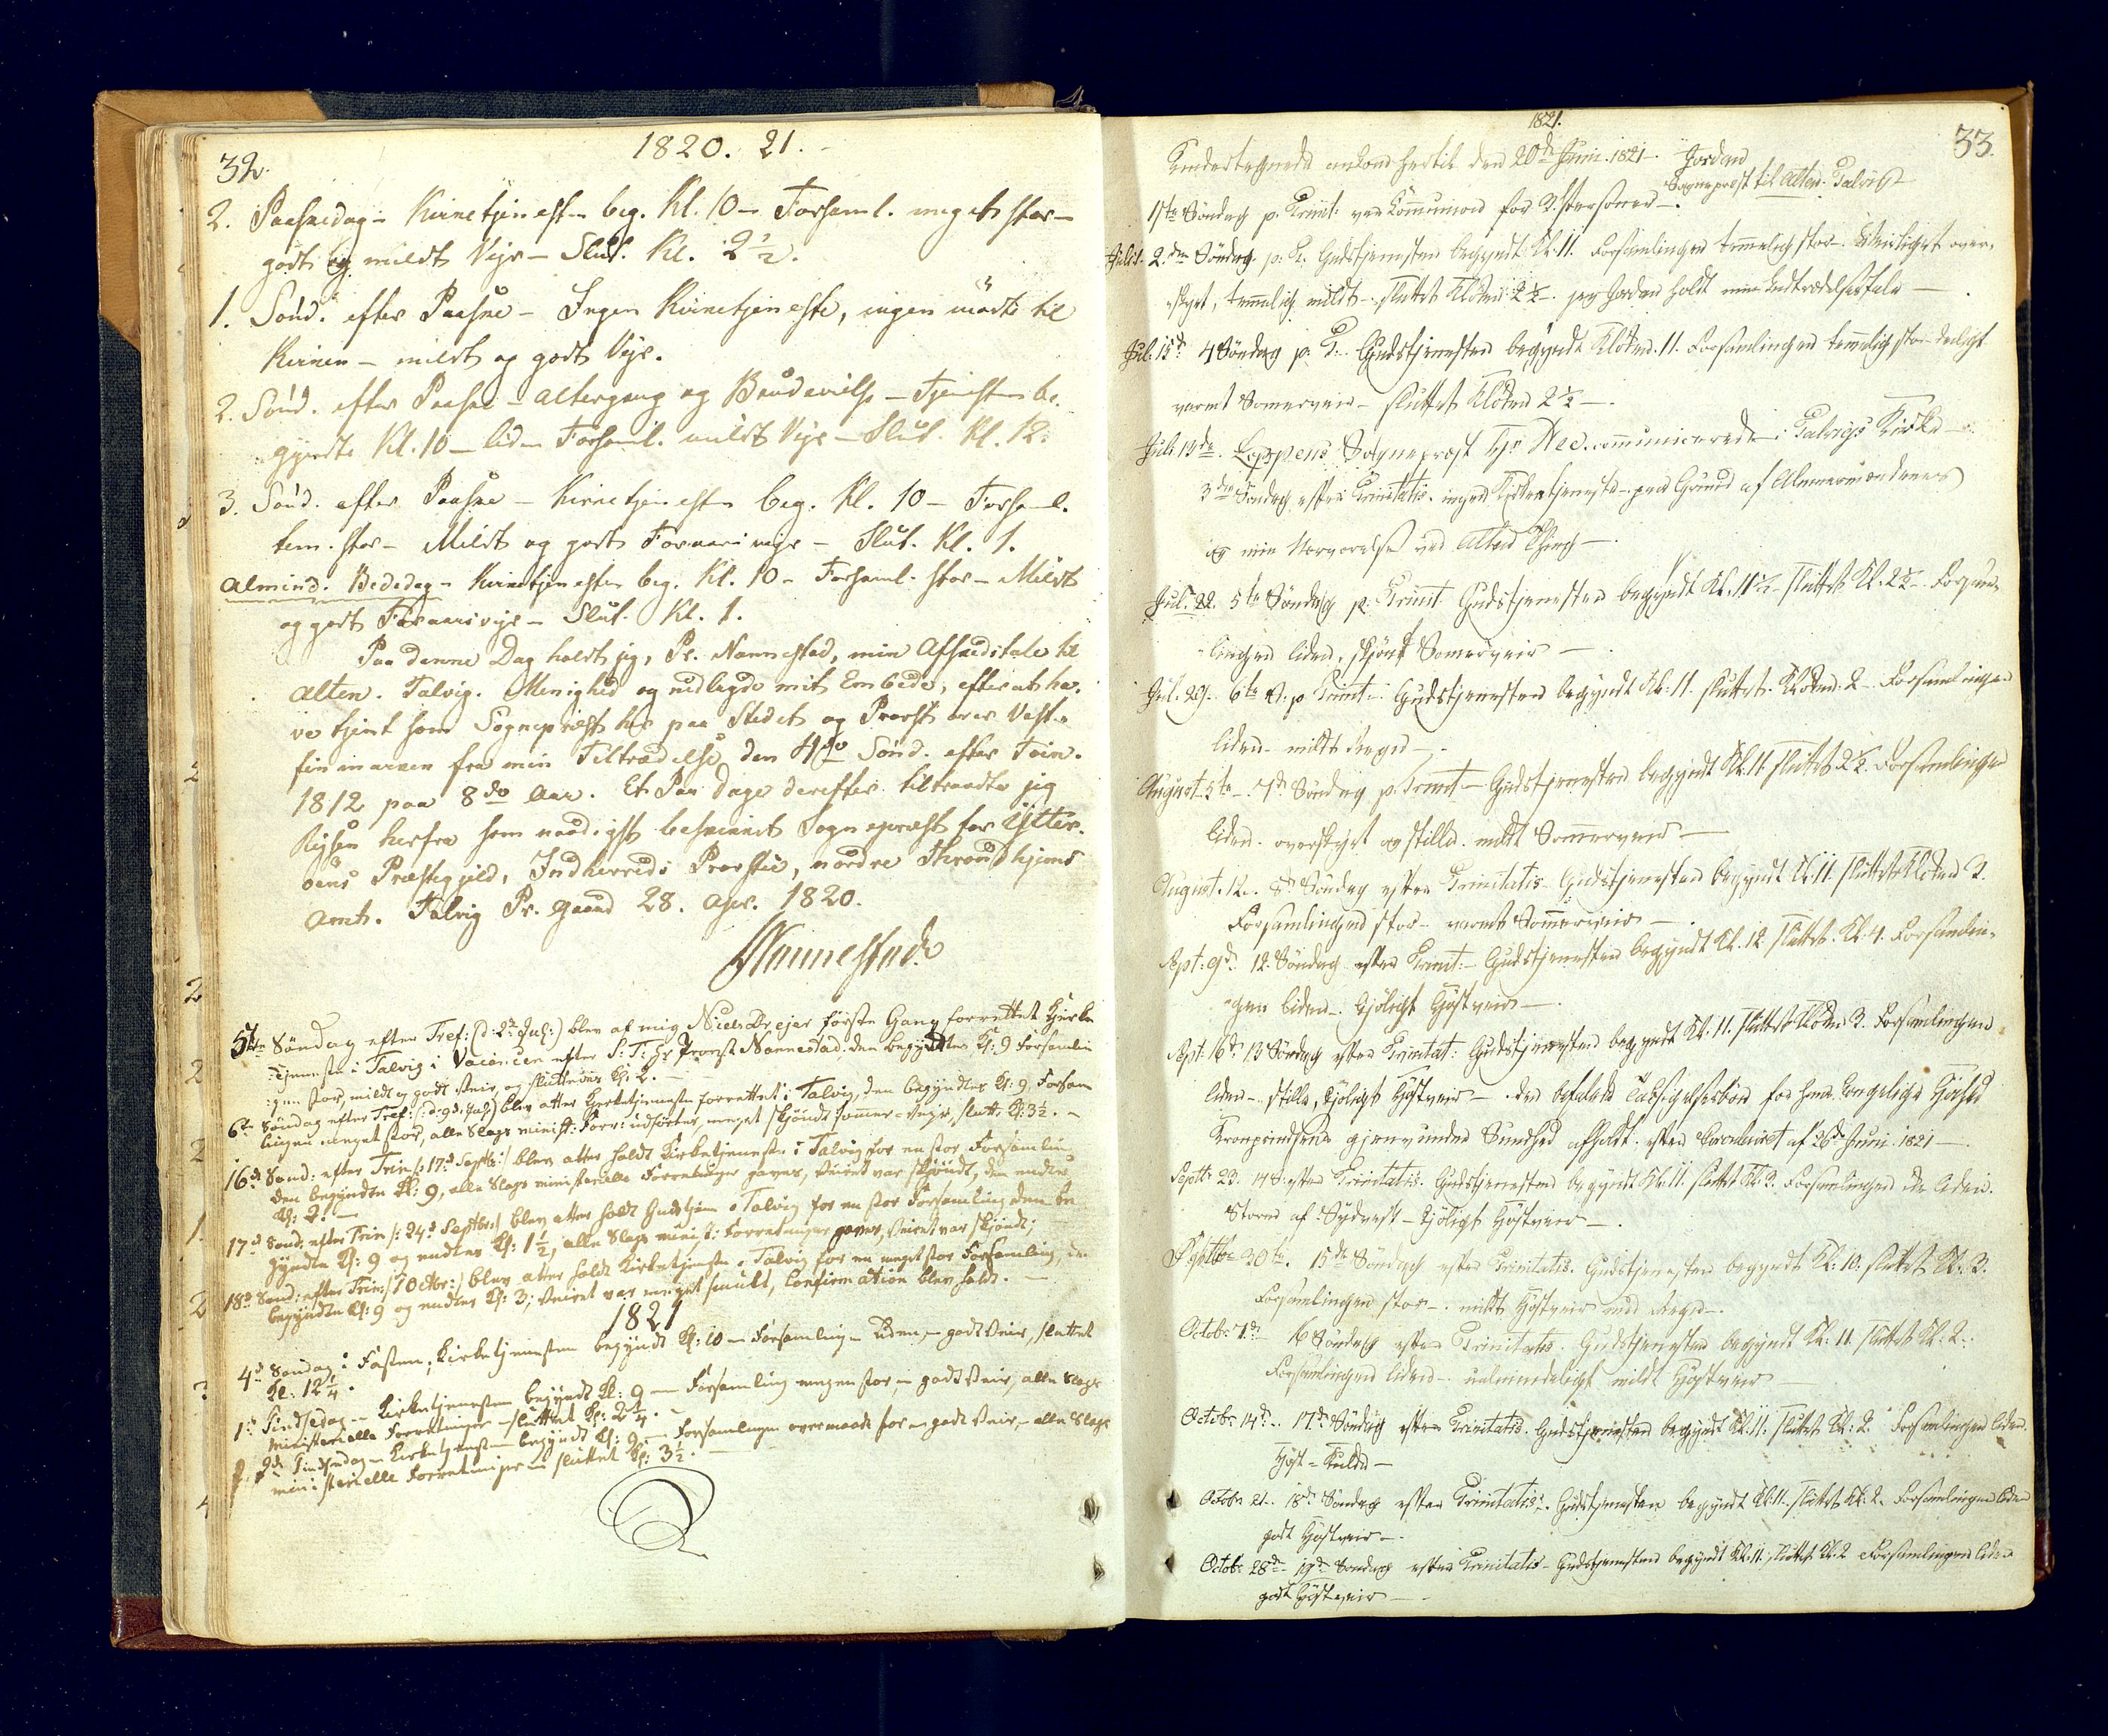 32.
1820. 21.
2. Paaskedag - Kirketjenesten beg. Kl. 10 - Forsaml. meget stor -
godt og mildt Vejr - Slut. Kl. 2 1/2.
1. Sönd. efter Paaske - Ingen Kirketjeneste, ingen mödte til
Kirken - mildt og godt Vejr.
2. Sönd. efter Paaske - Altergang og Brudevielse - Tjenesten be-
gyndte Kl. 10 - liden Forsaml. mildt Vejr - Slut. Kl. 12.
3. Sönd. efter Paaske - Kirketjenesten beg. Kl. 10 - Forsaml.
tem. stor - Mildt og godt Foraarsvejr - Slut. Kl. 1.
Almind. Bededag - Kirketjenesten beg. Kl. 10 - Forsaml. stor - Mildt
og godt Foraarsvejr - Slut. Kl. 1.
Paa denne Dag holdt jeg, Pr. Nannestad, min Afskedstale til
Alten-Talvig Menighed og nedlagde mit Embede, efter at ha-
ve tjent som Sognepræst her paa Stedet og Provst over Vest-
finmarken fra min Tiltrædelse den 4de Sönd. efter Trin.
1812 paa 8de Aar. Et Par Dage derefter tiltraadte jeg
Rejsen herfra som naadigst beskikket Sognepræst for Ytter-
öens Præstegjeld, Indherreds Provstie, nordre Throndhjems
Amt. Talvig Pr. gaard 28. Apr. 1820.
Nannestad.
5te Söndag efter Tref: (d: 2d Jul:) blev af mig Niels Drejer förste Gang forrettet Kirke
tjenesten i Talvig i Vacancen efter S: T: Hr Provst Nannestad. den begyndtes Kl: 9 Forsamlin
gen stor, mildt og godt Veir, og sluttedes Kl: 2. -
6te Söndag efter Tref: (: d: 9d: Jul) blev atter Kirketjenesten forrettet i Talvig, den begyndtes Kl: 9. Forsam
lingen meget stor, alle Slags minist: Forr: udförtes, meget skjöndt Sommer-Vejr, slutt: Kl: 3 1/2. -
16d Sönd: efter Trin (: 17d Septb:) blev atter holdt Kirketjeneste i Talvig for en stor Forsamling
den begyndte Kl: 9, alle Slags ministerielle Forretninger gaves, Veiret var skjöndt, den endtes
Kl: 2. -
17d Sönd: efter Trin (: 24d Septbr:) blev atter holdt Gudstjen: i Talvig for en stor Forsamling den be
gyndte Kl: 9 og endtes Kl: 1 1/2, alle Slags minist: Forretninger gaves, Veiret var skjöndt;
18d Sönd: efter Trin: (: 1 Octbr:) blev atter holdt Kirketjeneste i Talvig for en meget stor Forsamling, den
begyndte Kl: 9 og endtes Kl: 3; Veiret var meget smukt, Confirmation blev holdt. -
1821
4d Söndag i Fasten; Kirketjenesten begyndt Kl: 10 - Forsamlingen liden - godt Veir, sluttet
Kl. 12 1/4.
1te Pindsedag - Kirketjenesten begyndt Kl: 9 - Forsamling megen stor, - godt Veir, alle Slags
ministerielle Forretninger - sluttet Kl: 2 1/4. -
2den Pindsedag - Kirketjenesten begyndt Kl: 9 - Forsamlingen overmaade stor - godt Veir, - alle Slags
ministerielle Forretninger - sluttet Kl: 3 1/2. -
1821.
33.
Undertegnede ankom hertil den 20de Juni. 1821. Jordan
Sognepræst til Alten-Talvig
1ste Söndag p. Trinit: var Communion for 2 Personer -
Juli 1. 2den Söndag p. T. Gudstjenesten begyndt Kl. 11. Forsamlingen temmelig stor - Veirliget over-
skyet, temmelig mildt - sluttet Klokken 2 1/2. jeg Jordan holdt min Indtrædelsestale -
Jul: 15d 4 Söndag p: T. Gudstjenesten begyndt Klokken 11. Forsamlingen temmelig stor - deiligt
varmt Sommerveir - sluttet Klokken 2 1/2 -
Juli 13de. Loppens Sognepræst Hr communicerede i Talvigs Kirke -
3die Söndag efter Trinitatis. ingen Kirketjeneste paa Grund af
og min Nærværelse ved Alten Thing -
Jul: 22. 5te Söndag p: Trinit. Gudstjenesten begyndt Kl. 11 1/2 - sluttet Kl. 2 1/2. Forsam-
lingen liden, skjönt Sommerveir -
Jul. 29. 6te S. p Trinit - Gudstjenesten begyndt Kl: 11. sluttet Klokken 2 - Forsamlingen
liden - mildt Regn -
August 5te - 7de Söndag p. Trinit - Gudstjenesten begyndt Kl. 11 sluttet 2 1/2. Forsamlingen
liden. overskyet og stille. mildt Sommerveir -
August. 12. 8d Söndag efter Trinitatis - Gudstjenesten begyndt Kl. 11. sluttet Klokken 3.
Forsamlingen stor - varmt Sommerveir -
Sept: 9d 12. Söndag efter Trinit: - Gudstjenesten begyndt Kl. 12 sluttet Kl. 4. Forsamlin-
gen liden - kjöligt Höstveir -
Sept: 16d 13 Söndag efter Trinitat: Gudstjenesten begyndt Kl. 11. sluttet Klokken 3. Forsamlingen
liden - stille, kjöligt Höstveir - den befalede Taksigelsesbön for Hans Kongelige Höihed
Kronprindsens gjenvundne Sundhed afholdt efter Circulairet af 26de Juni 1821 -
Septb: 23. 14 S. efter Trinitatis. Gudstjenesten begyndt Kl: 11. sluttet Kl: 3. Forsamlingen liden.
Storm af Sydvest - kjöligt Höstveir -
Septbr 30te. 15de Söndag efter Trinitatis. Gudstjenesten begyndt Kl: 10. sluttet Kl: 3.
Forsamlingen stor - mildt Höstveir med Regn -
Octob: 7d - 16 Söndag efter Trinitatis. Gudstjenesten begyndt Kl: 11. sluttet Kl: 2.
Forsamlingen liden - ualmindeligt mildt Höstveir -
Octobr 14d - 17d Söndag efter Trinitatis. Gudstjenesten begyndt Kl: 11. sluttet Kl: 2. Forsamlingen liden.
Höst-Kulde -
Octobr 21. 18d Söndag efter Trinitatis. Gudstjenesten begyndt Kl: 11. sluttet Kl: 2. Forsamlingen liden
godt Höstveir -
Octob: 28d - 19d Söndag efter Trinitatis - Gudstjenesten begyndt Kl: 11. sluttet Kl. 2 Forsamlingen liden
godt Höstveir -